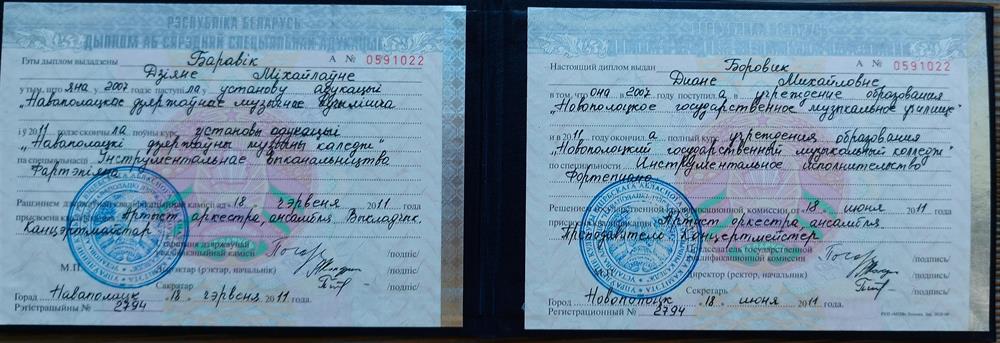 РЭСПУБЛІКА БЕЛАРУСЬ
ДЫПЛОМ АБ СЯРЭДНЯЙ СПЕЦЫЯЛЬНАЙ АДУКАЦЫІ
Гэты дыплом выдадзены Баравік А № 0591022
Дзіяне Міхайлаўне
у тым, што яна 2007 годзе паступіла ў установу адукацыі
„Наваполацкое дзяржаўнае музычнае вучылішча
і ў 2011 годзе скончыла поўны курс установы адукацыі
„Наваполацкі дзяржаўны музычны каледж"
па спецыяльнасці Інструментальнае выканальніцтва
Фартэпіяна
Рашэннем дзяржаўнай кваліфікацыйнай камісіі ад 18 чэрвеня 2011 года
прысвоена кваліфікацыя Артыст аркестра, ансамбля. Выкладчык.
Канцэртмайстар
Старшыня дзяржаўнай
кваліфікацыйнай камісіі /подпіс/
М.П. Дырэктар (рэктар, начальнік) /подпіс/
Сакратар /подпіс/
Горад Наваполацк 18 чэрвеня 2011 года.
Рэгістрацыйны № 2794
Настоящий диплом выдан Боровик А № 0591022
Диане Михайловне
в том, что она 2007 году поступила в учреждение образования
„Новополоцкое государственное музыкальное училище"
и в 2011 году окончила полный курс учреждения образования
„Новополоцкий государственный музыкальный колледж"
по специальности Инструментальное исполнительство
Фортепиано
Решением государственной квалификационной комиссии от 18 июня 2011 года
присвоена квалификация Артист оркестра, ансамбля.
Преподаватель Концертмейстер
Председатель государственной
квалификационной комиссии /подпись/
М.П. Директор (ректор, начальник) /подпись/
Секретарь /подпись/
Город Новополоцк 18 июня 2011 года.
Регистрационный № 2794